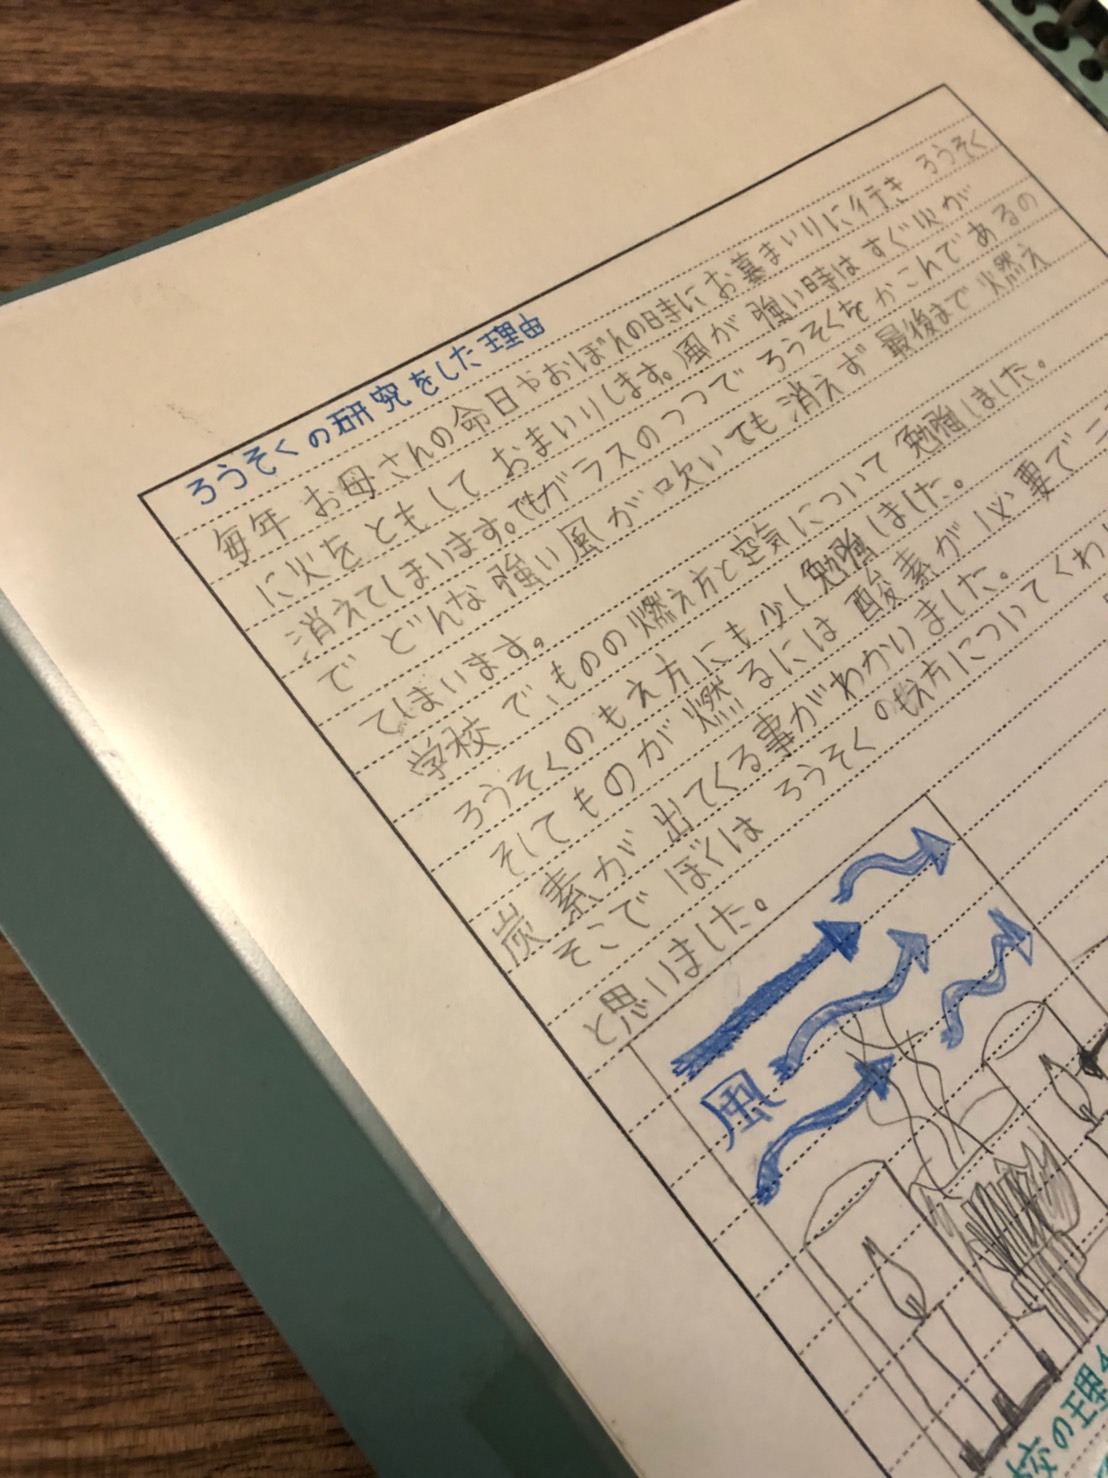 ろうそくの研究をした理由
毎年 お母さんの命日やおぼんの時にお墓まいりに行き ろうそく
に火を ともして おまいりします。風が 強い時は すぐ火が
消えてしまいます。でもガラスのつつで ろうそくを かこんであるの
で どんな 強い風 が 吹いても 消えず 最後まで 燃え
てしまいます。
学校 で、ものの 燃え方と空気について 勉強しました。
ろうそくのもえ方にも 少し勉強しました。
そして ものが 燃るには 酸素が 必要で 二
炭素が 出てくる事がわかりました。
そこで ぼくは ろうそく のもえ方についてくわし
と思いました。
風
校の理